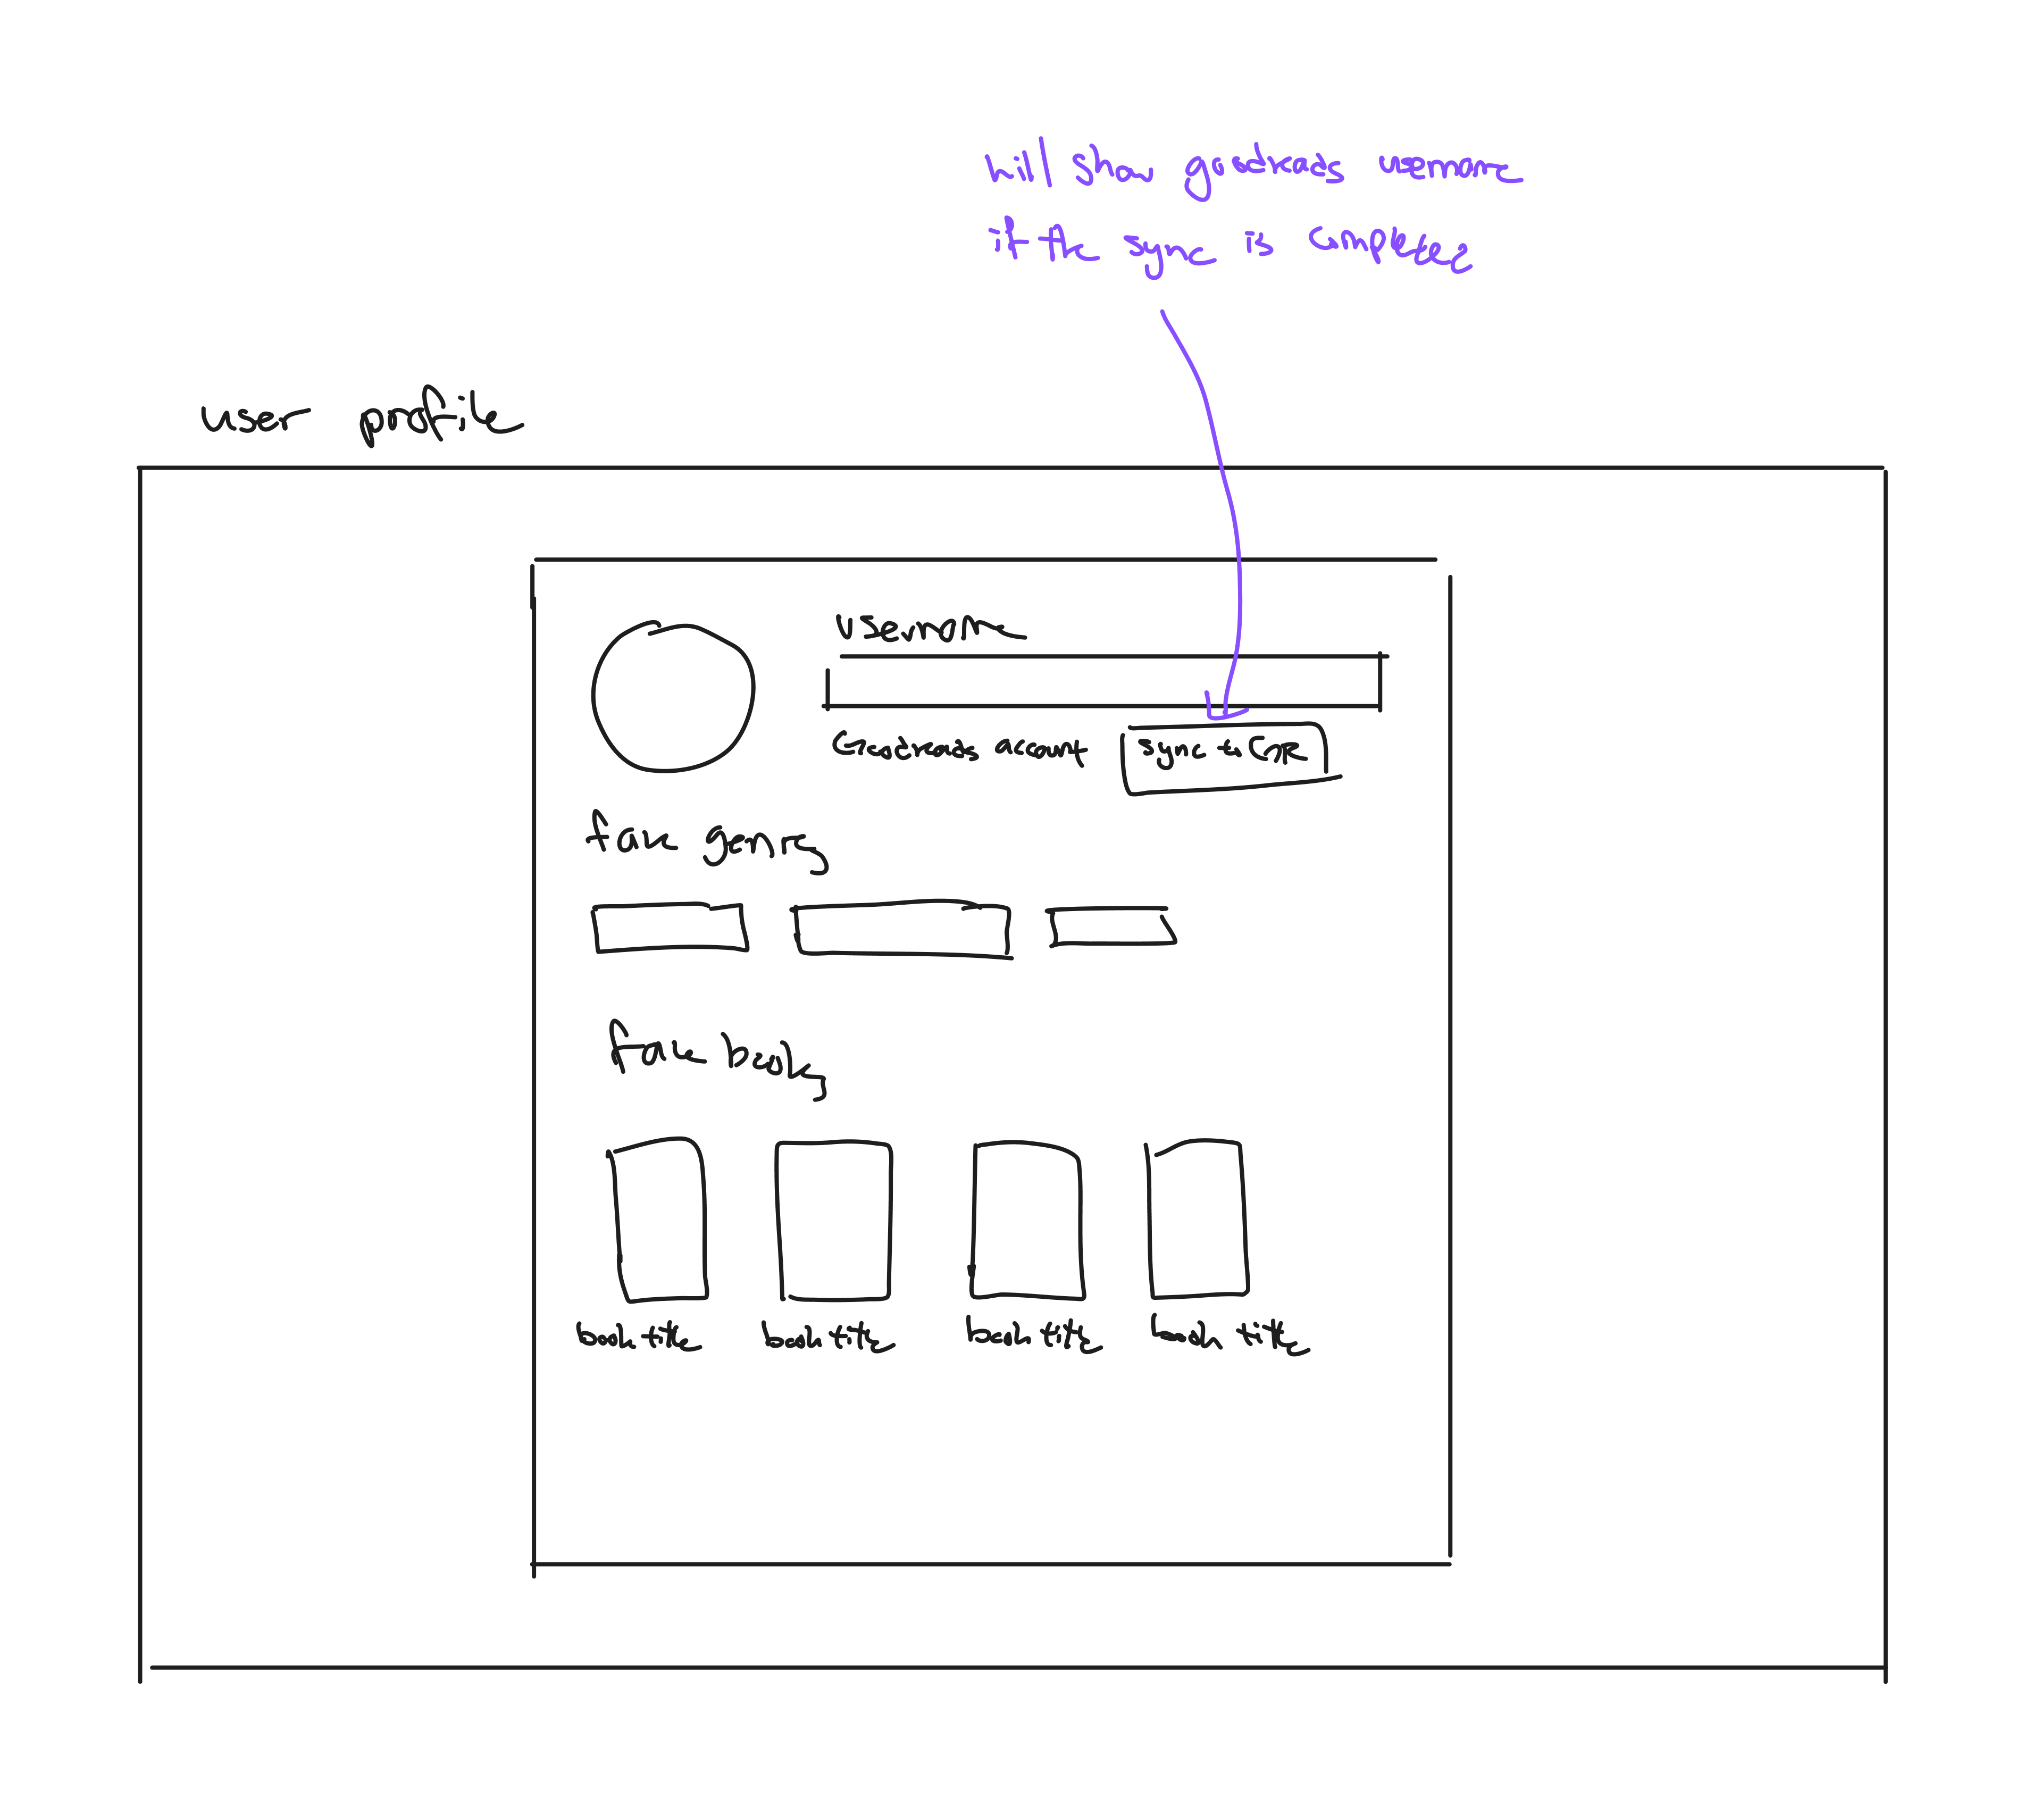 will show goodreads username
if the sync is completed
user profile
username
Goodreads account sync to GR
fave genres
fave books
book title book title book title book title